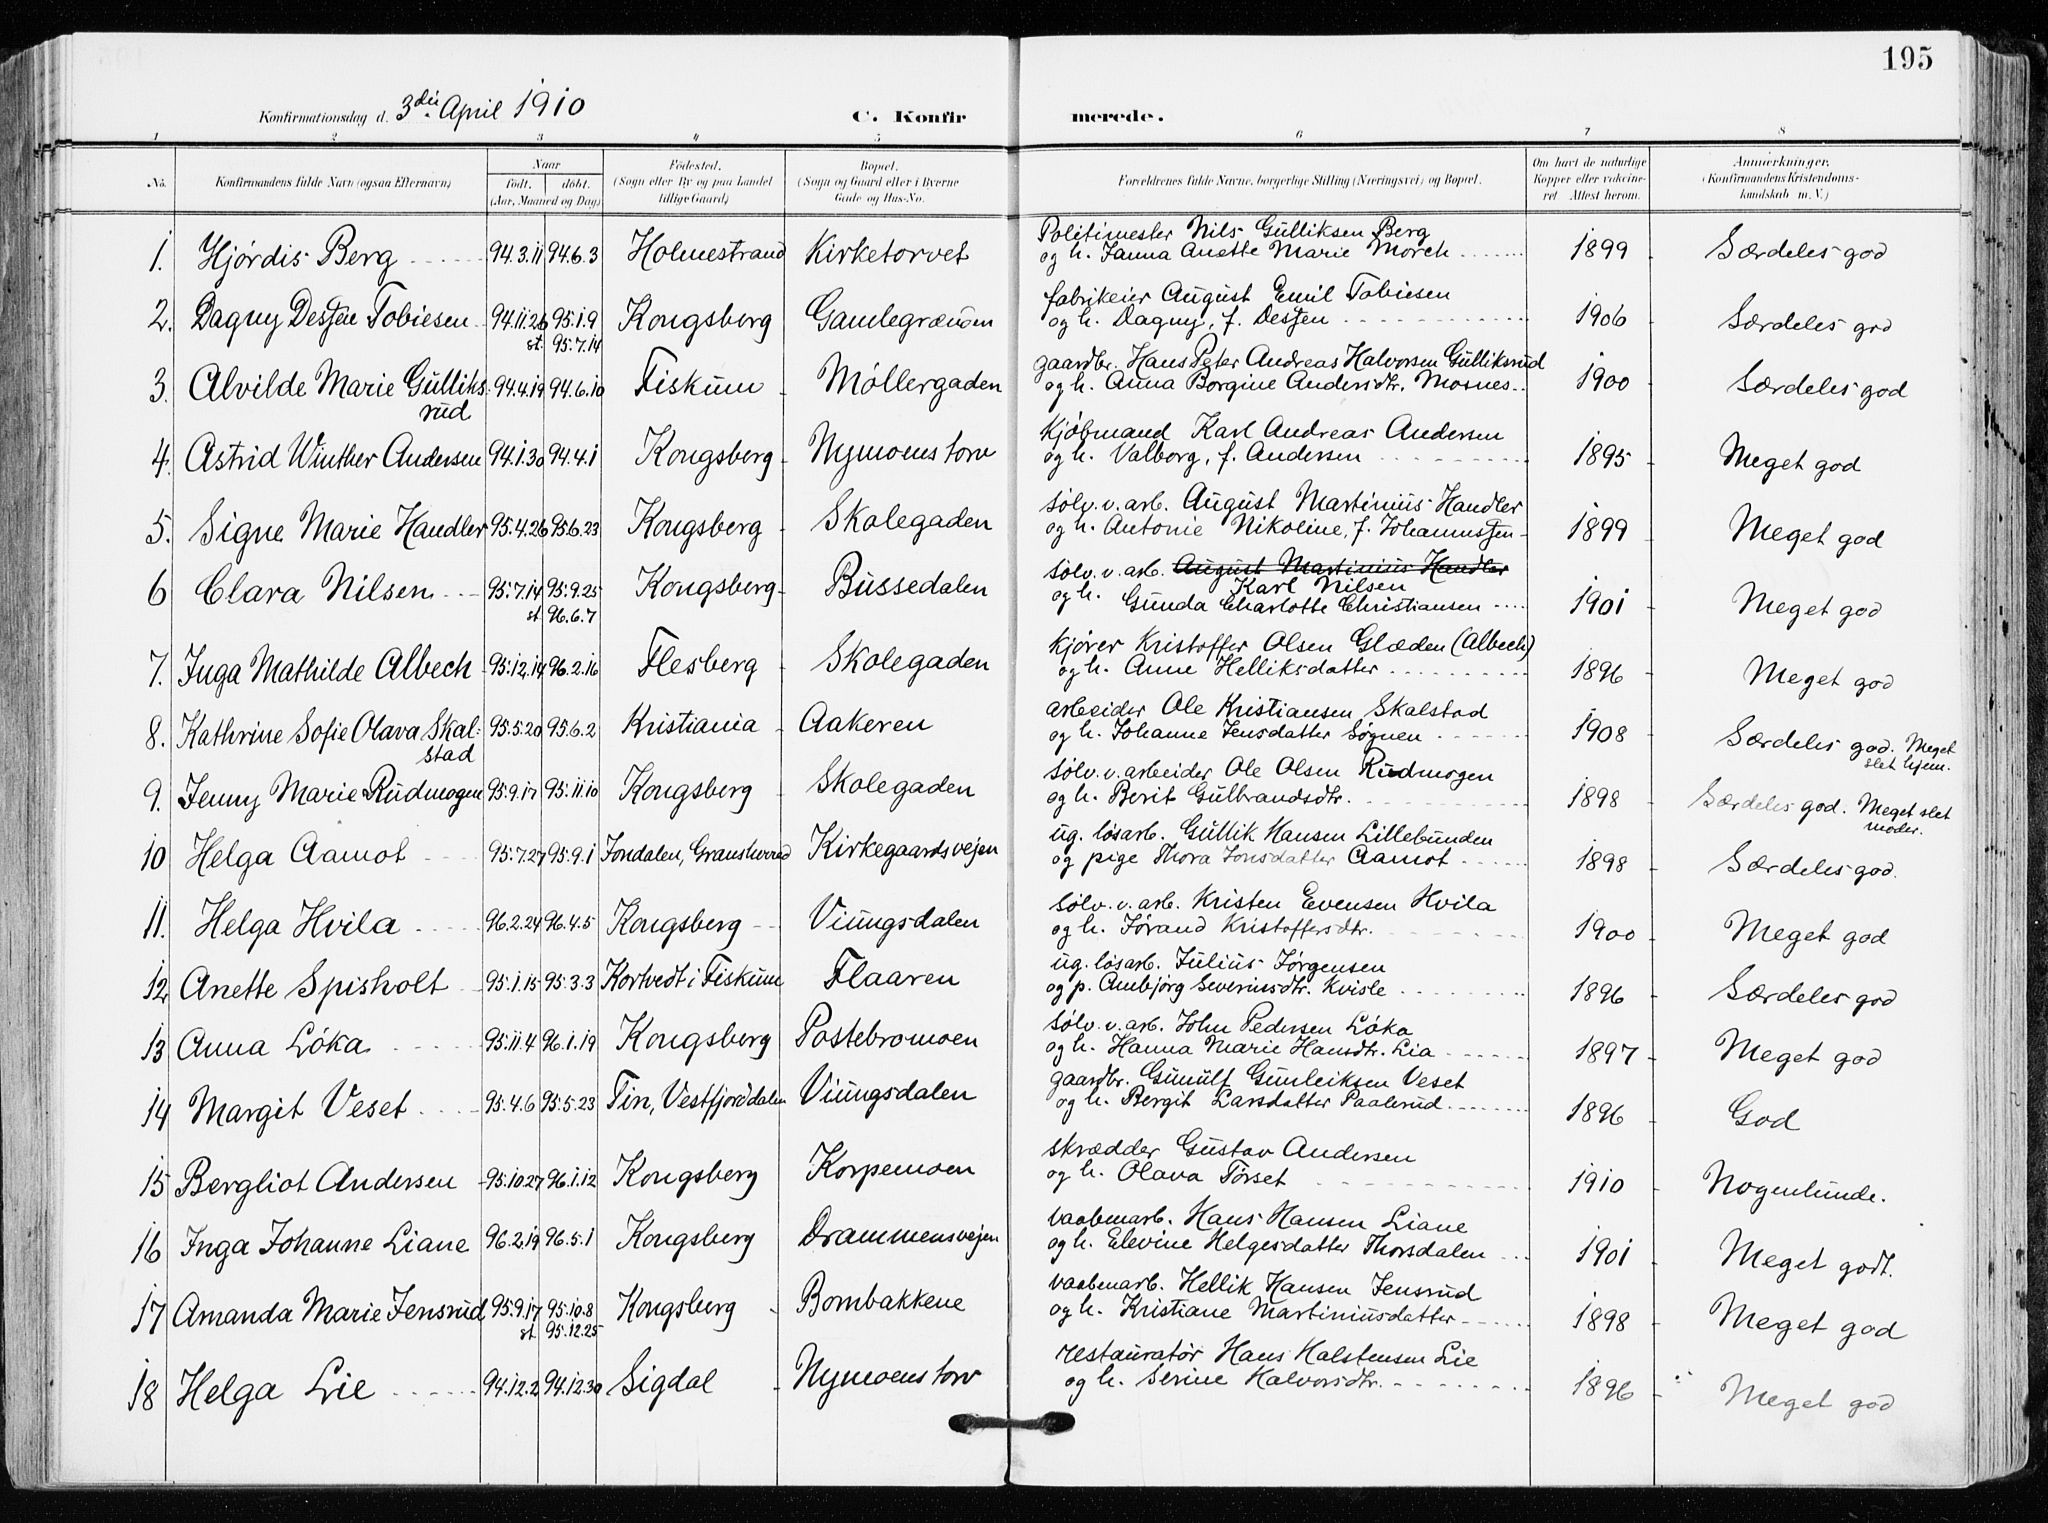 195
Konfirmationsdag d. 3die April 1910 C. Konfirmerede.
1 2 3 4 5 6 7 8
No. Konfirmandens fulde Navn (ogsaa Efternavn) Naar født. døbt. (Aar, Maaned og Dag) Fødested. (Sogn eller By og paa Landet tillige Gaard) Bopæl. (Sogn og Gaard eller i Byerne Gade og Hus-No. Forældrenes fulde Navne, borgerlige Stilling (Næringsvei) og Bopæl. Om havt de naturlige Kopper eller vakcineret Attest herom. Anmærkninger. (Konfirmandens Kristendomskundskab m. V.)
1. Hjørdis Berg 94.3.11 94.6.3 Holmestrand Kirketorvet Politimester Nils Gulliksen Berg 1899 Særdeles god
og h. Janna Anette Marie Morch
2. Dagny Desen Tobiesen 94.11.26 95.1.9 Kongsberg Gamlegrænden fabrikeier August Emil Tobiesen 1906 Særdeles god
st. 95.7.14 og h. Dagny, f. Desen
3. Alvilde Marie Gulliks- 94.4.19 94.6.10 Fiskum Møllergaden gaardbr. Hans Peter Andreas Halvorsen Gulliksrud 1900 Særdeles god
rud og h. Anna Borgine Andersdtr. Mosnes
4. Astrid Winther Andersen 94.1.30 94.4.1 Kongsberg Nymoens torv Kjøbmand Karl Andreas Andersen 1895 Meget god
og h. Valborg, f. Andersen
5. Signe Marie Handler 95.4.26 95.6.23 Kongsberg Skolegaden sølv.v.arb. August Martinius Handler 1899 Meget god
og h. Antonie Nikoline, f. Johannessen
6 Clara Nilsen 95.7.14 95.9.25 Kongsberg Bussedalen sølv.v.arb. August Martinius Handler 1901 Meget god
st. 96.6.7 Karl Nilsen
og h. Gunda Charlotte Christiansen
7. Inga Mathilde Albech 95.12.14 96.2.16 Flesberg Skolegaden kjører Kristoffer Olsen Glæden (Albech) 1896 Meget god
og h. Anne Helliksdatter
8. Kathrine Sofie Olava Skal- 95.5.20 95.6.2 Kristiania Aakeren arbeider Ole Kristiansen Skalstad 1908 Særdeles god. Meget slet hjem.
stad og h. Johanne Jensdatter Søgnen
9. Jenny Marie Rudmogen 95.9.17 95.11.10 Kongsberg Skolegaden sølv.v.arbeider Ole Olsen Rudmogen 1898 Særdeles god. Meget slet moder.
og h. Berit Gulbrandsdtr.
10 Helga Aamot 95.7.27 95.9.1 Jondalen, Gransherred Kirkegaardsvejen ug. løsarb. Gullik Hansen Lillebunden 1898 Særdeles god.
og pige Thora Jonsdatter Aamot
11. Helga Hvila 96.2.24 96.4.5 Kongsberg Viungsdalen sølv.v.arb. Kristen Evensen Hvila 1900 Meget god
og h. Jørand Kristoffersdtr.
12. Anette Spisholt 95.1.15 95.3.3 Kortvedt i Fiskum Flaaren ug. løsarb. Julius Jørgensen 1896 Særdeles god
og p. Ambjørg Severinsdtr. Kvisle
13 Anna Løka 95.11.4 96.1.19 Kongsberg Postebromoen sølv.v.arb. John Pedersen Løka 1897 Meget god
og h. Hanna Marie Hansdtr. Lia
14 Margit Veset 95.4.6 95.5.23 Tin, Vestfjorddalen Viungsdalen gaardbr. Gunulf Gunleiksen Veset 1896 God
og h. Bergit Larsdatter Paalerud
15 Bergliot Andersen 95.10.27 96.1.12 Kongsberg Korpemoen skrædder Gustav Andersen 1910 Nogenlunde.
og h. Olava Tørset
16 Inga Johanne Liane 96.2.19 96.5.1 Kongsberg Drammensvejen vaabenarb. Hans Hansen Liane 1901 Meget godt.
og h. Elevine Helgesdatter Thorsdalen
17 Amanda Marie Jensrud 95.9.17 95.10.8 Kongsberg Bombakkene vaabenarb. Hellik Hansen Jensrud 1898 Meget god
st. 95.12.25 og h. Kristiane Martiniusdatter
18 Helga Lie 94.12.2 94.12.30 Sigdal Nymoens torv restauratør Hans Halstensen Lie 1896 Meget god
og h. Serine Halvorsdtr.